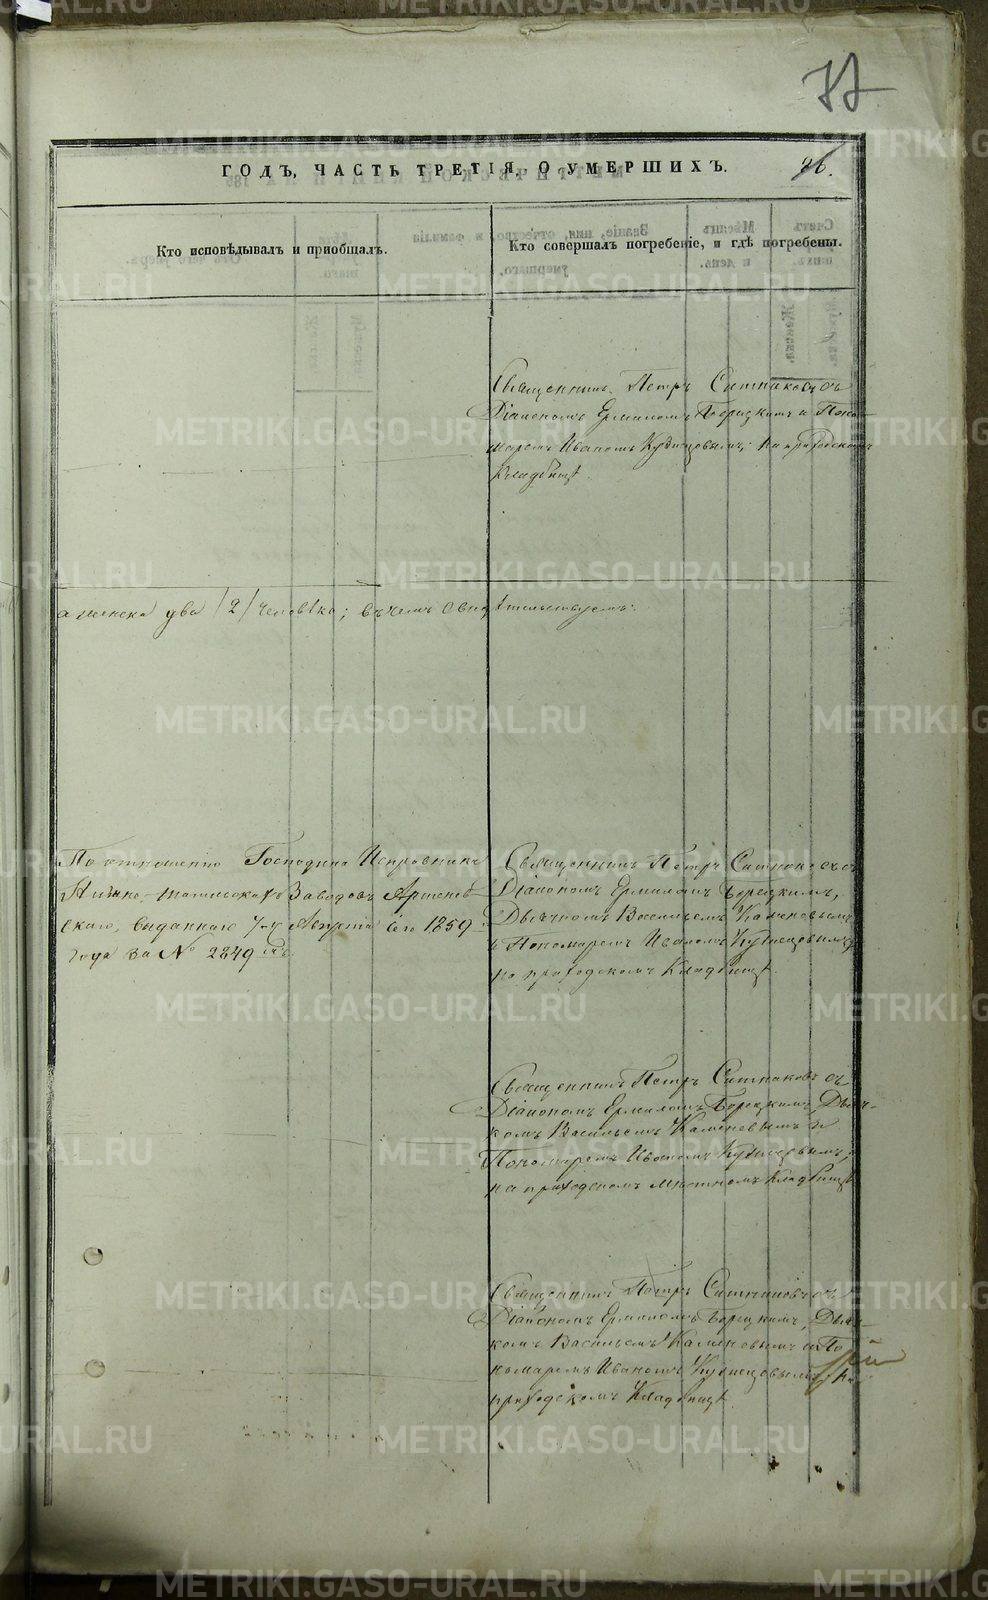 77
ГОДЪ, ЧАСТЬ ТРЕТІЯ, О УМЕРШИХЪ.
Кто исповѣдывалъ и пріобщалъ.
Кто совершалъ погребеніе, и гдѣ погребены.
Священникъ Петръ Ситниковъ съ
Діакономъ Ермиломъ Борецкимъ и Поно-
маремъ Иваномъ Кузнецовымъ; на приходскомъ
Кладбищѣ.
а женска два /2/ человѣка; въ чемъ свидѣтельствуемъ:
По отношенію Господина Исправника
Заводовъ
выданного 7го Апрѣля сего 1859
года за № 2849
Священникъ Петръ Ситниковъ съ
Діакономъ Ермиломъ Борецкимъ,
Дьячкомъ Васильемъ Каменевымъ
и Пономаремъ Иваномъ Кузнецовымъ;
на приходскомъ Кладбищѣ.
Священникъ Петръ Ситниковъ съ
Діакономъ Ермиломъ Борецкимъ Дьяч-
комъ Васильемъ Каменевымъ и
Пономаремъ Иваномъ Кузнецовымъ;
на приходскомъ мѣстномъ Кладбищѣ
Священникъ Петръ Ситниковъ съ
Діакономъ Ермиломъ Борецкимъ, Дьяч-
комъ Васильемъ Каменевымъ и По
номаремъ Иваномъ Кузнецовымъ; на
приходскомъ Кладбищѣ.
METRIKI.GASO-URAL.RU